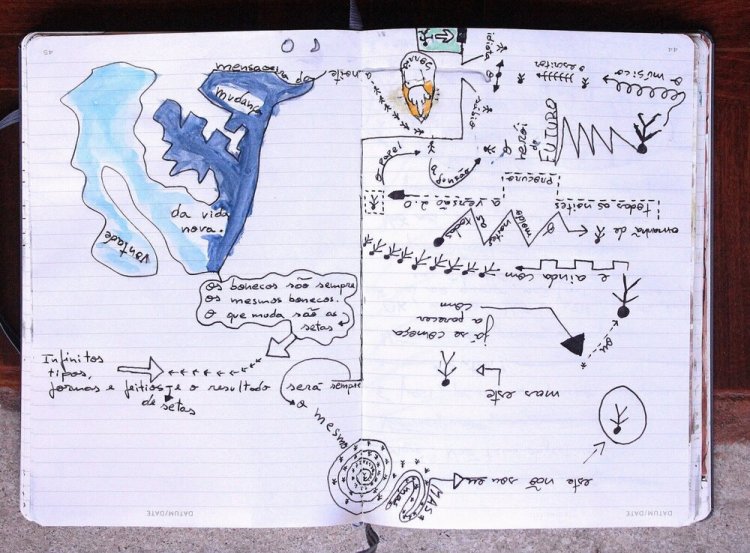 45
mensageira da noite
mudança
da vida
nova.
vontade
Os bonecos são sempre
os mesmos bonecos.
O que muda são as
setas
Infinitos
tipos,
formas e feitios e o resultado será sempre
de setas
o mesmo
DATUM/DATE
DATUM/DATE
este não sou eu
MAS
mas este
já se começa
a parecer
com
ou
e ainda com
amanhã de
todas as noites
procuro
a versão 2.0
herói
do
FUTURO
o papel
a função
sábio
idiota
o escritor
o músico
44